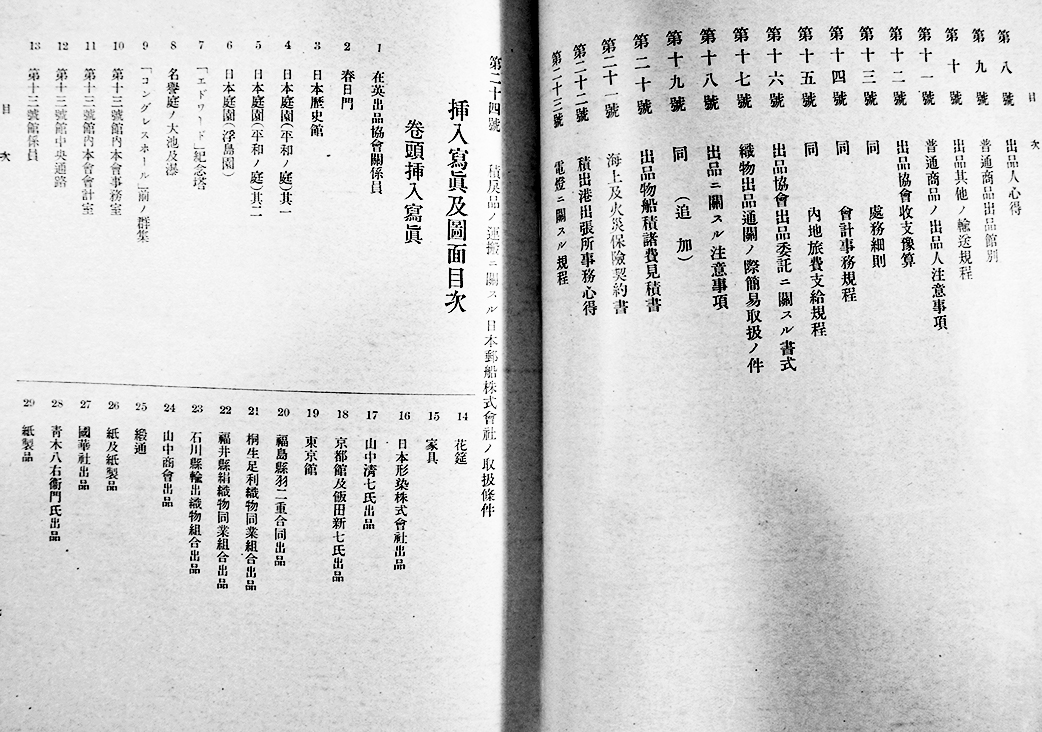 目次
第八號 出品人心得
第九號 普通商品出品館別
第十號 出品其他ノ輸送規程
第十一號 普通商品ノ出品人注意事項
第十二號 出品協會收支豫算
第十三號 同 處務細則
第十四號 同 會計事務規程
第十五號 同 內地旅費支給規程
第十六號 出品協會出品委託ニ關スル書式
第十七號 織物出品通關ノ際簡易取扱ノ件
第十八號 出品ニ關スル注意事項
第十九號 同 (追加)
第二十號 出品物船積諸費見積書
第二十一號 海上及火災保險契約書
第二十二號 積出港出張所事務心得
第二十三號 電燈ニ關スル規程
第二十四號 積戾品ノ運搬ニ關スル日本郵船株式會社ノ取扱條件
挿入寫眞及圖面目次
卷頭挿入寫眞
1 在英出品協會關係員
2 春日門
3 日本歷史館
4 日本庭園(平和ノ庭)其一
5 日本庭園(平和ノ庭)其二
6 日本庭園(浮島園)
7 「エドワード」紀念塔
8 名譽庭ノ大池及瀑
9 「コングレスホール」前ノ群集
10 第十三號館內本會事務室
11 第十三號館內本會會計室
12 第十三號館中央通路
13 第十三號館係員
14 花筵
15 家具
16 日本形染株式會社出品
17 山中淸七氏出品
18 京都館及飯田新七氏出品
19 東京館
20 福島縣羽二重合同出品
21 桐生足利織物同業組合出品
22 福井縣絹織物同業組合出品
23 石川縣輸出織物組合出品
24 山中商會出品
25 緞通
26 紙及紙製品
27 國華社出品
28 靑木八右衞門氏出品
29 紙製品
目次